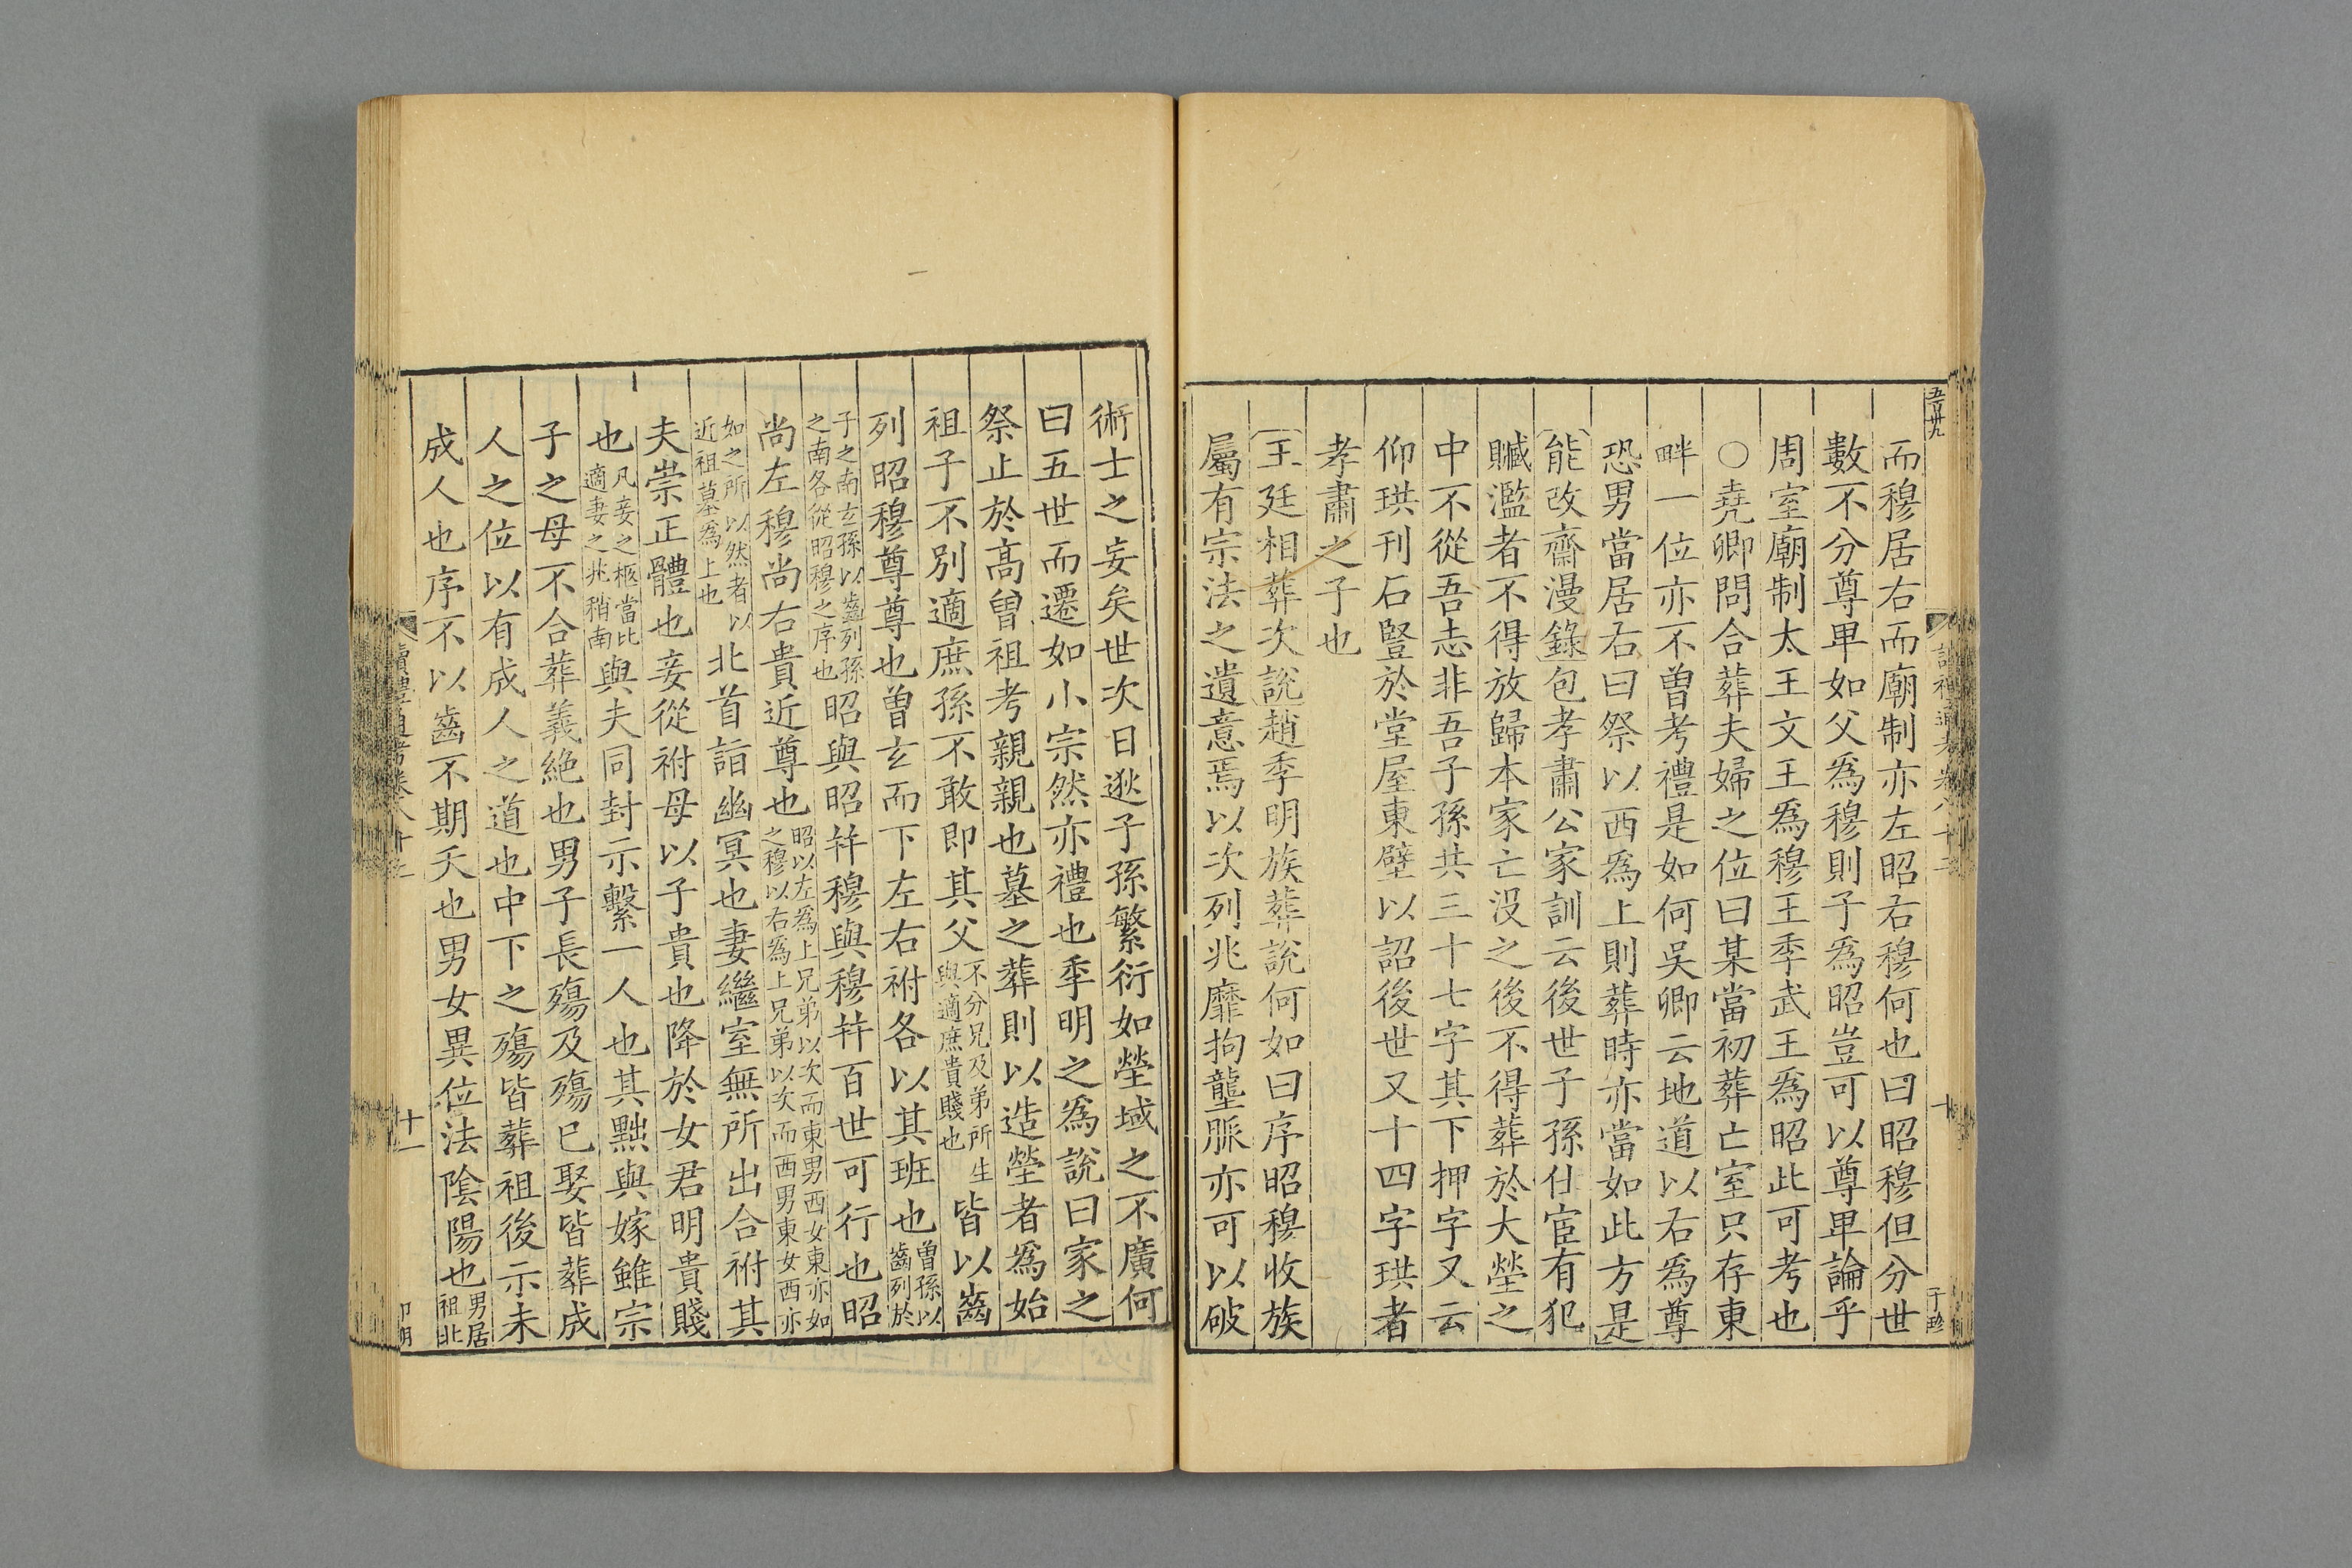 五百卅九
而穆居右而廟制亦左昭右穆何也曰昭穆但分世
數不分尊卑如父爲穆則子爲昭豈可以尊卑論乎
周室廟制太王文王爲穆王季武王爲昭此可考也
○堯卿問合葬夫婦之位曰某當初葬亡室只存東
畔一位亦不曾考禮是如何吳卿云地道以右爲尊
恐男當居右曰祭以西爲上則葬時亦當如此方是
能改齋漫錄包孝肅公家訓云後世子孫仕宦有犯
贓濫者不得放歸本家亡没之後不得葬於大塋之
中不從吾志非吾子孫共三十七字其下押字又云
仰珙刊石豎於堂屋東壁以詔後世又十四字珙者
孝肅之子也
王廷相葬次說趙季明族葬說何如曰序昭穆收族
屬有宗法之遺意焉以次列兆靡拘壟脈亦可以破
術士之妄矣世次日逖子孫繁衍如塋域之不廣何
曰五世而遷如小宗然亦禮也季明之爲說曰家之
祭止於高曾祖考親親也墓之葬則以造塋者爲始
祖子不別適庶孫不敢即其父不分兄及弟所生與適庶貴賤也皆以齒
列昭穆尊尊也曾玄而下左右祔各以其班也曾孫以齒列於
子之南玄孫以齒列孫之南各從昭穆之序也昭與昭幷穆與穆幷百世可行也昭
尚左穆尚右貴近尊也昭以左爲上兄弟以次而東男西女東亦如之穆以右爲上兄弟以次而西男東女西亦
如之所以然者以近祖墓爲上也北首詣幽冥也妻繼室無所出合祔其
夫崇正體也妾從祔母以子貴也降於女君明貴賤
也凡妾之柩當比適妻之兆稍南與夫同封示繫一人也其黜與嫁雖宗
子之母不合葬義絶也男子長殤及殤已娶皆葬成
人之位以有成人之道也中下之殤皆葬祖後示未
成人也序不以齒不期夭也男女異位法陰陽也男居祖北
讀禮通考卷八十二
十一